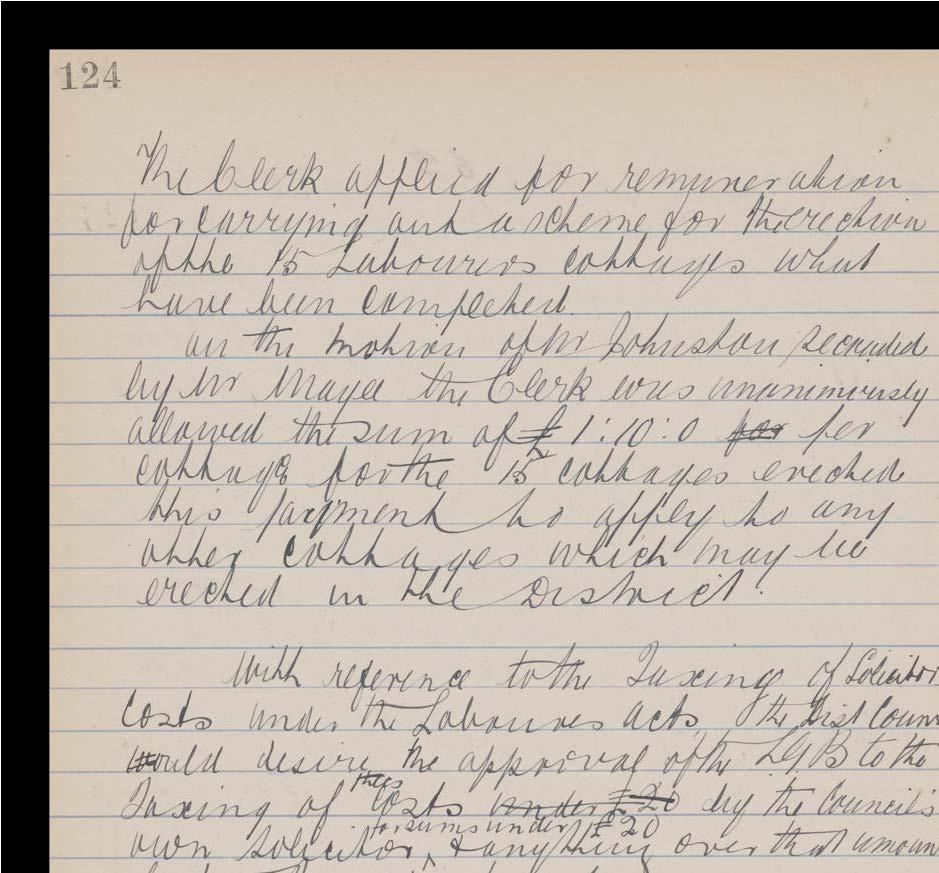 124
The Clerk applied for remuneration
for carrying out a scheme for the erection
of the 15 Labourers cottages what
have been completed.
on the motion of Mr Johnston seconded
by Mr Magee the Clerk was unanimously
allowed the sum of £ 1:10:0 for per
cottage for the 15 cottages erected
this payment to apply to any
other cottages which may be
erected in the District.
With reference to the Taxing of Solicitor
Costs under the Labourers Acts, the Dist Coun
would desire the approval of the LGB to the
thees
Taxing of Costs under £20 by the Council's
for sums under £20
own Solicitor, & anything over that amoun